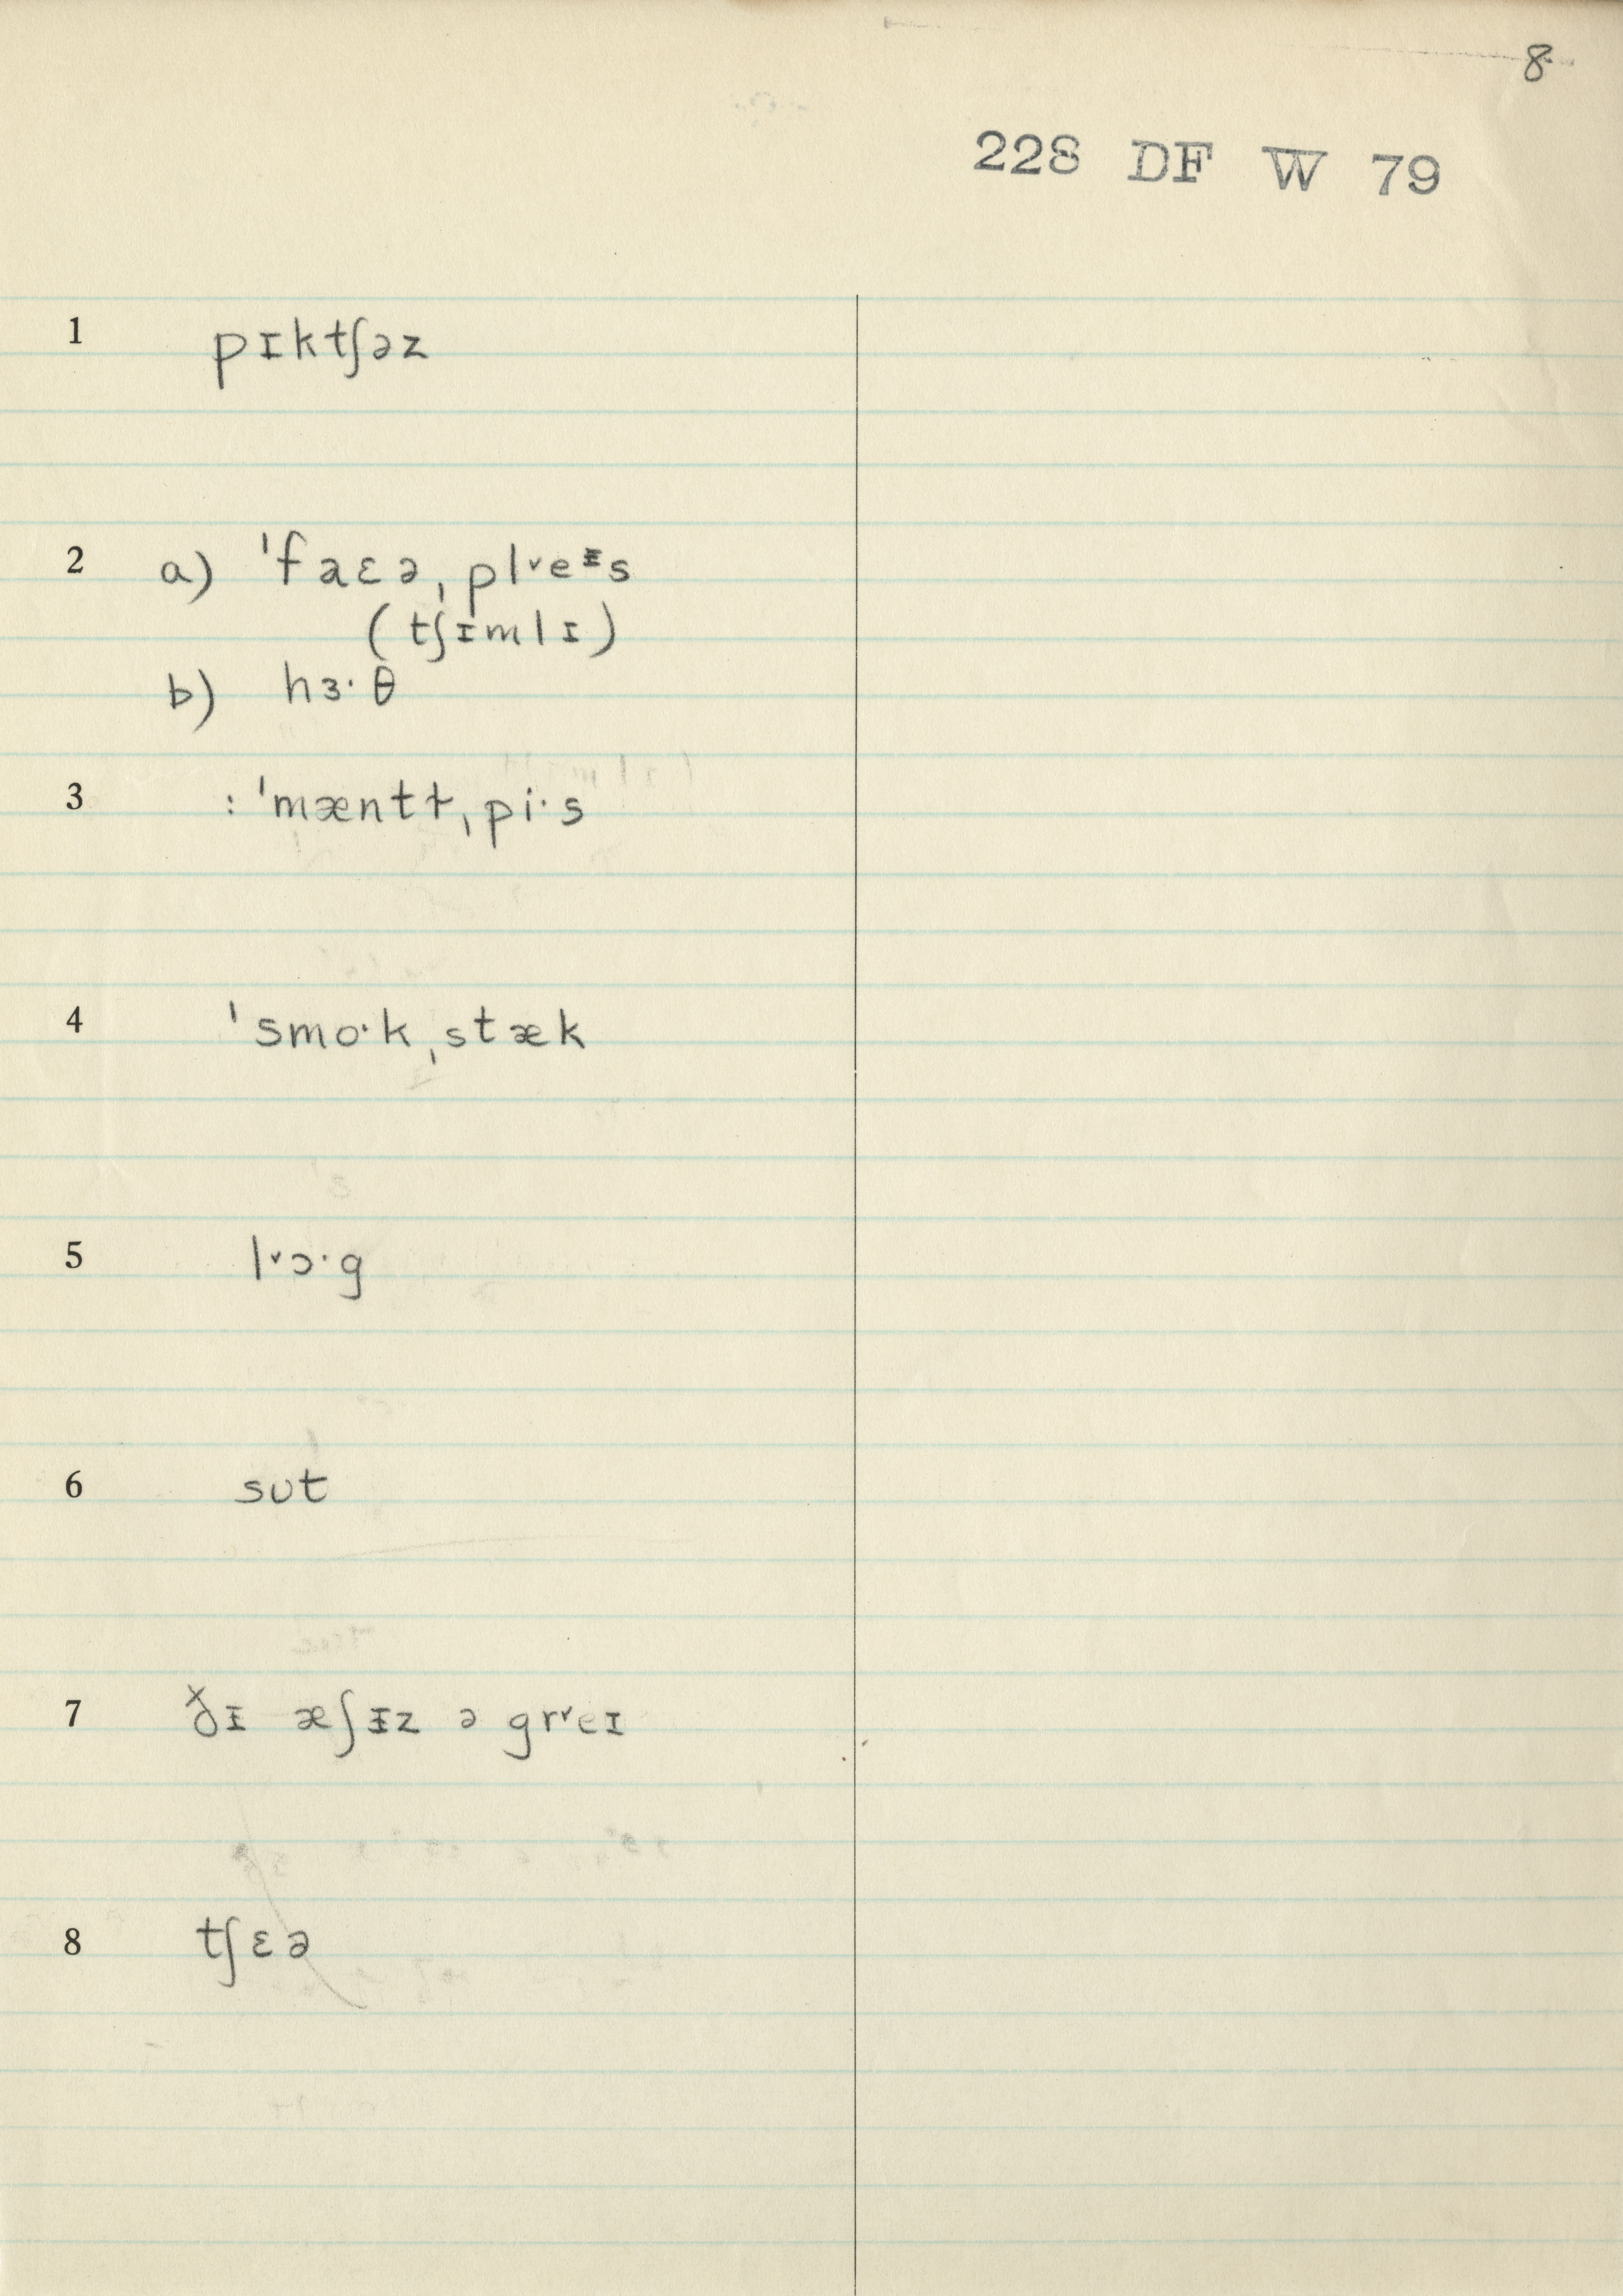 8.
228 DF W 79
1 pɪktʃəz
2 a) ˈfaɛəˌplᵛeᵻs
(tʃɪmlɪ)
b) hɜ·θ
3 : ˈmæntɫˌpi·s
4 ˈsmo·kˌstæk
5 lᵛɔ·g
6 sʊt
7 ð̌ɪ æʃᵻz ə grᵛeɪ
8 tʃɛə